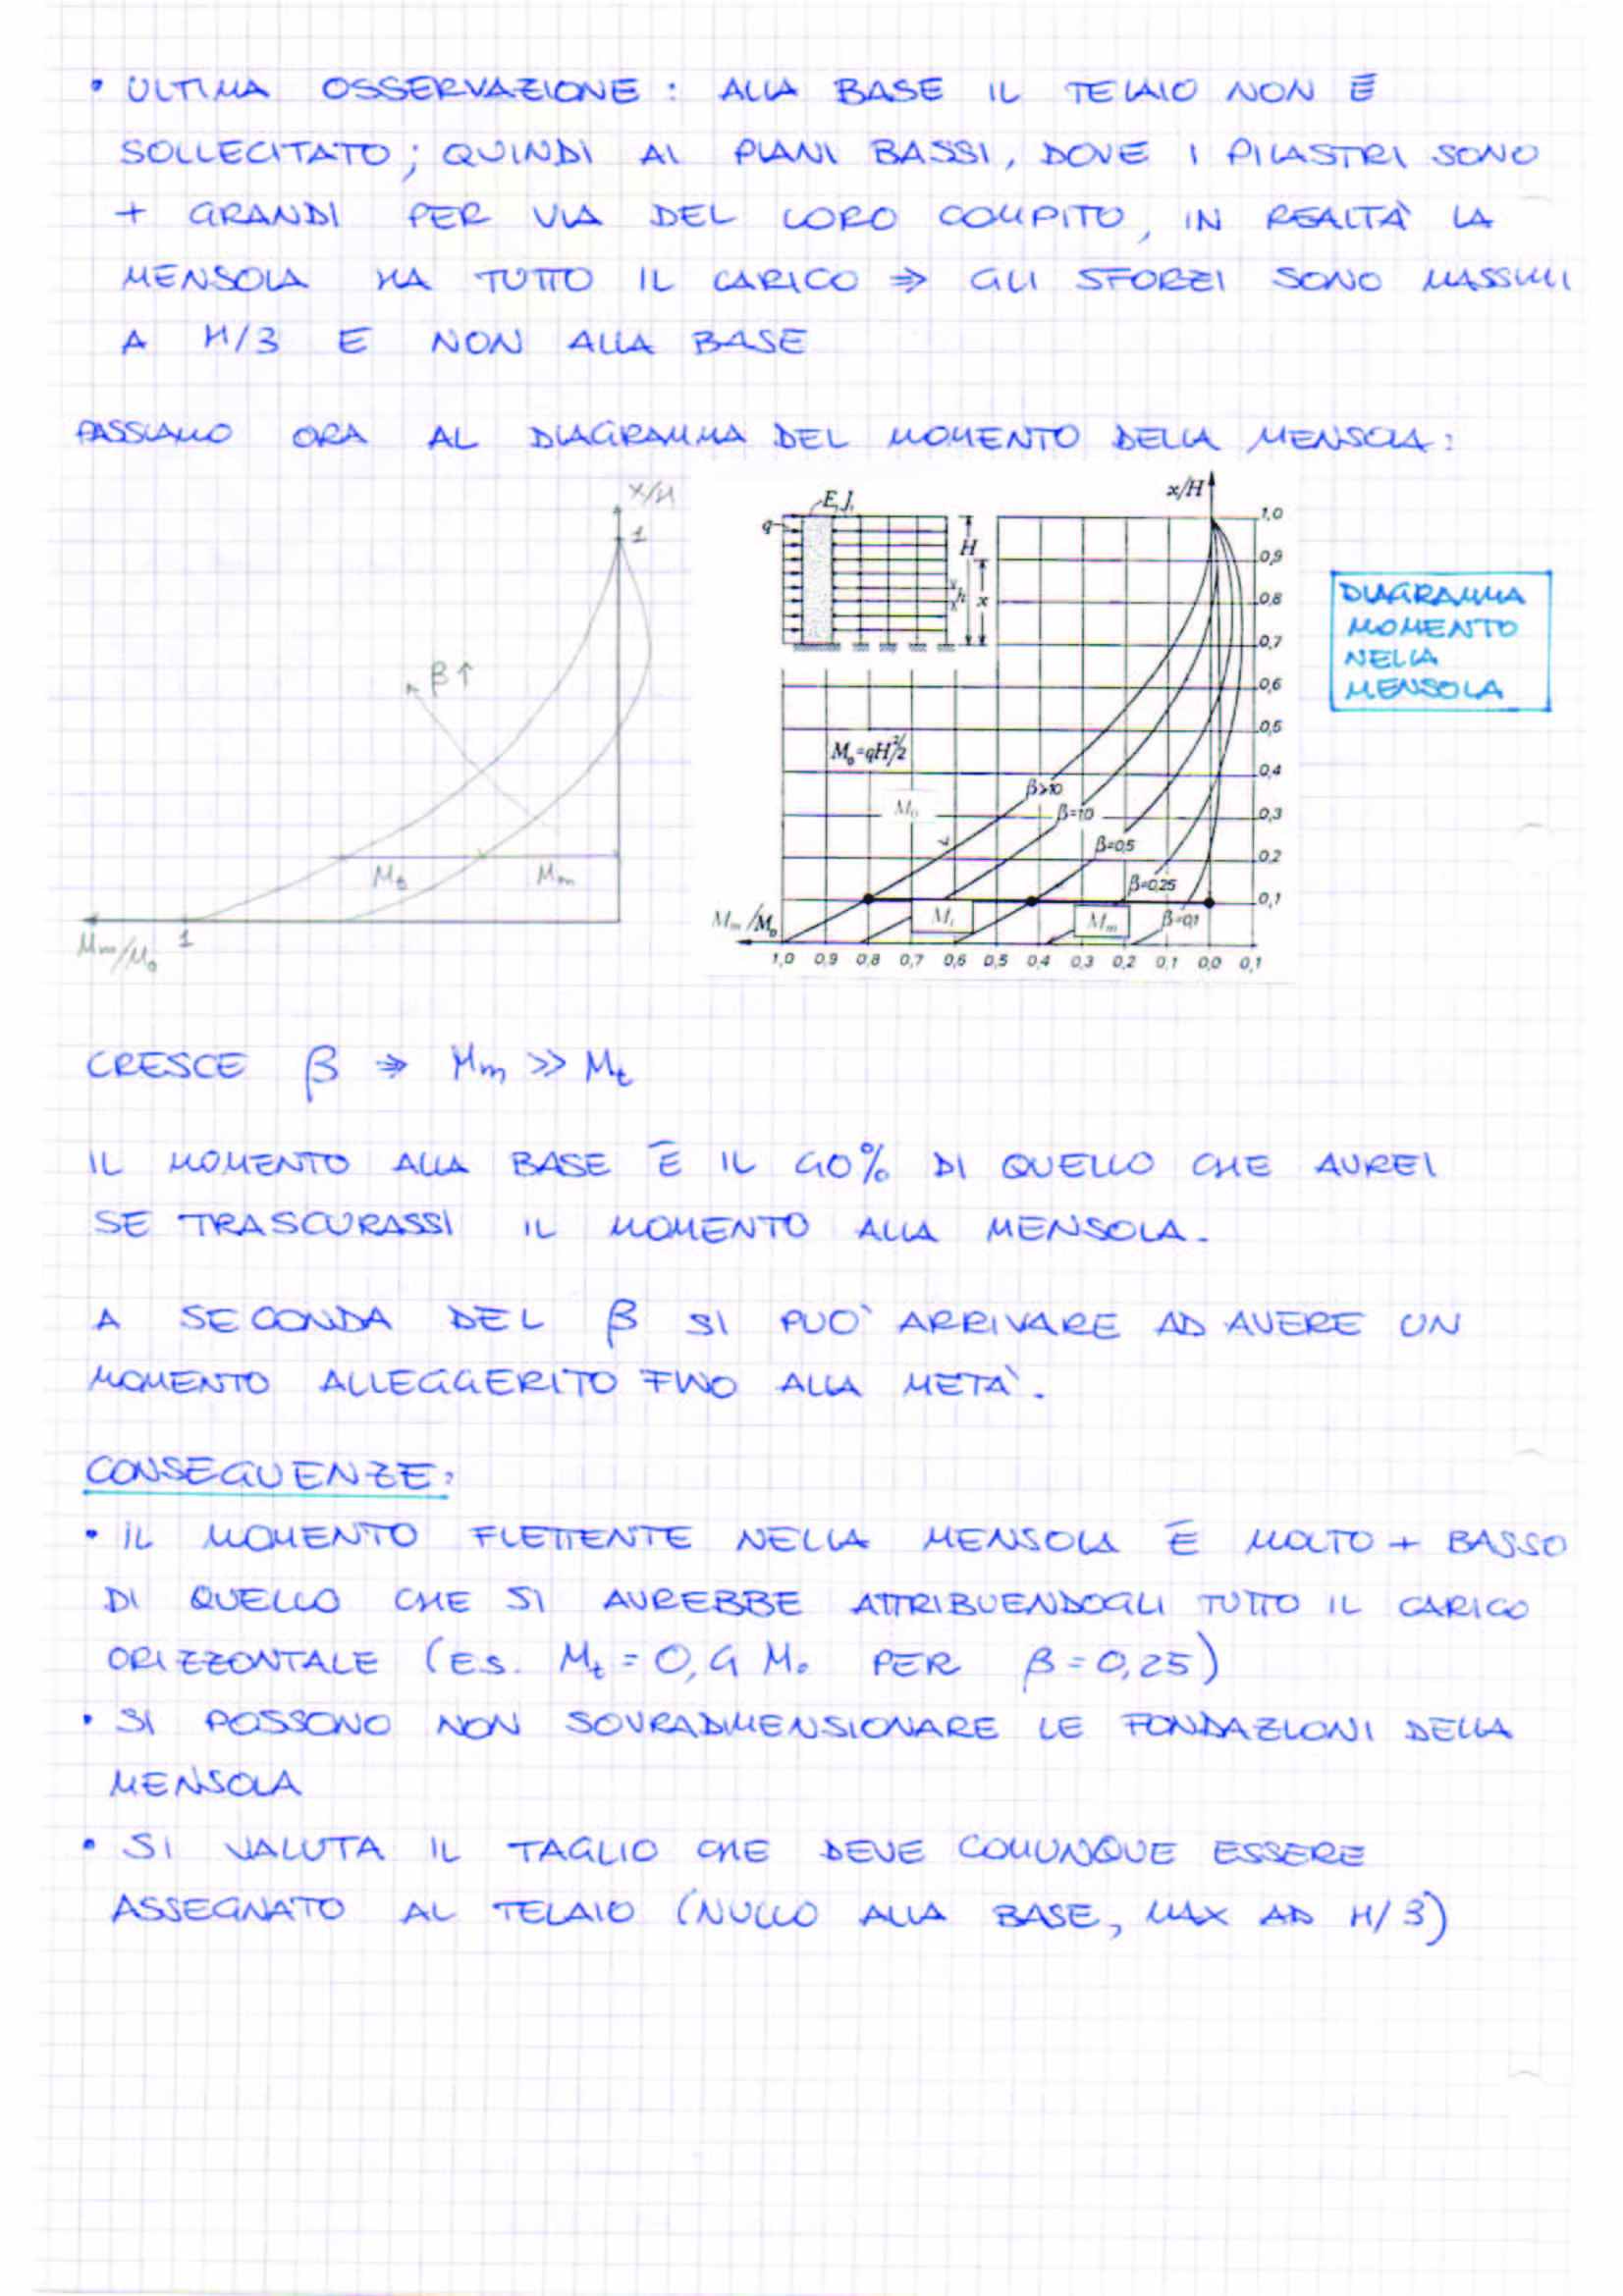 • ULTIMA OSSERVAZIONE : ALLA BASE IL TELAIO NON È
SOLLECITATO ; QUINDI AI PIANI BASSI, DOVE I PILASTRI SONO
+ GRANDI PER VIA DEL LORO COMPITO, IN REALTÀ LA
MENSOLA HA TUTTO IL CARICO ⇒ GLI SFORZI SONO MASSIMI
A H/3 E NON ALLA BASE
PASSIAMO ORA AL DIAGRAMMA DEL MOMENTO DELLA MENSOLA :
x/H
1
β↑
Mt
Mm
Mm/M₀
1
E, J,
q
H
h
x
x/H
1,0
0,9
0,8
0,7
0,6
0,5
0,4
0,3
0,2
0,1
M₀=qH²/2
M₀
β>10
β=10
β=0,5
β=0,25
β=0,1
Mt
Mm
Mm/M₀
1,0 0,9 0,8 0,7 0,6 0,5 0,4 0,3 0,2 0,1 0,0 0,1
DIAGRAMMA
MOMENTO
NELLA
MENSOLA
CRESCE β ⇒ Mm >> Mt
IL MOMENTO ALLA BASE È IL 40% DI QUELLO CHE AVREI
SE TRASCURASSI IL MOMENTO ALLA MENSOLA.
A SECONDA DEL β SI PUÒ ARRIVARE AD AVERE UN
MOMENTO ALLEGGERITO FINO ALLA METÀ.
CONSEGUENZE:
• IL MOMENTO FLETTENTE NELLA MENSOLA È MOLTO + BASSO
DI QUELLO CHE SI AVREBBE ATTRIBUENDOGLI TUTTO IL CARICO
ORIZZONTALE (ES. Mt = 0,4 M₀ PER β = 0,25)
• SI POSSONO NON SOVRADIMENSIONARE LE FONDAZIONI DELLA
MENSOLA
• SI VALUTA IL TAGLIO CHE DEVE COMUNQUE ESSERE
ASSEGNATO AL TELAIO (NULLO ALLA BASE, MAX AD H/3)